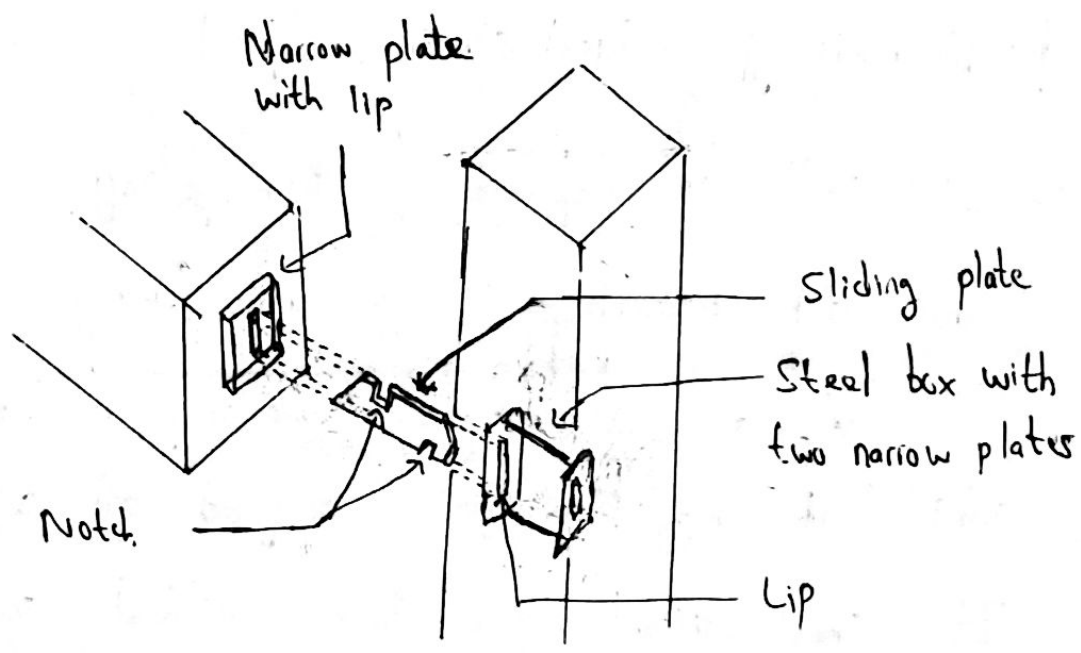 Narrow plate
with lip
Sliding plate
Steel box with
two narrow plates
Notch
Lip